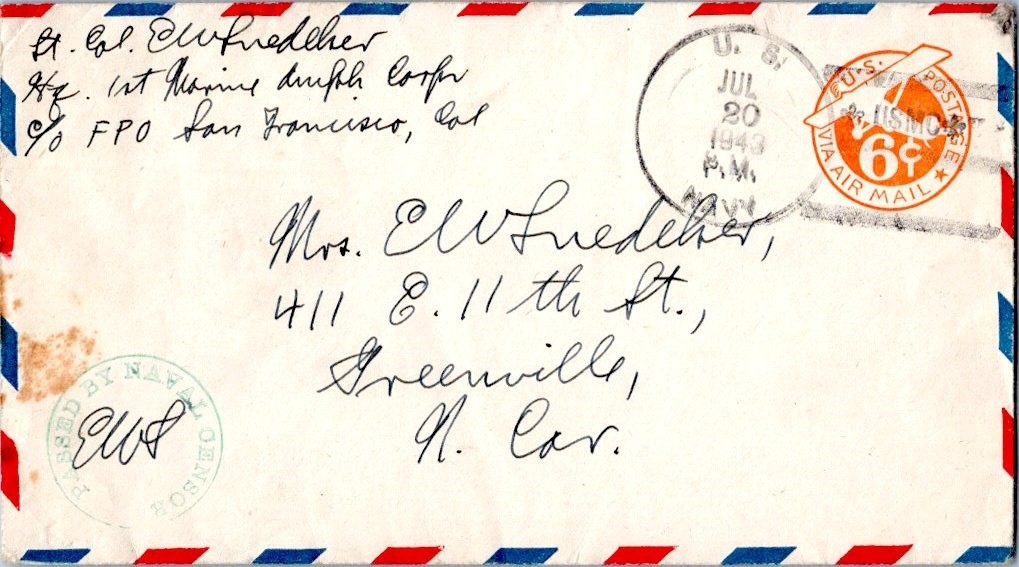 Lt. Col. E W Snedeker
Hq. 1st Marine Amph Corps
c/o FPO San Francisco, Cal
U. S.
JUL
20
1943
P.M.
NAVY
U.S. POSTAGE
USMC
6¢
VIA AIR MAIL
Mrs. E W Snedeker,
411 E. 11 th St.,
Greenville,
N. Car.
PASSED BY NAVAL CENSOR
EWS